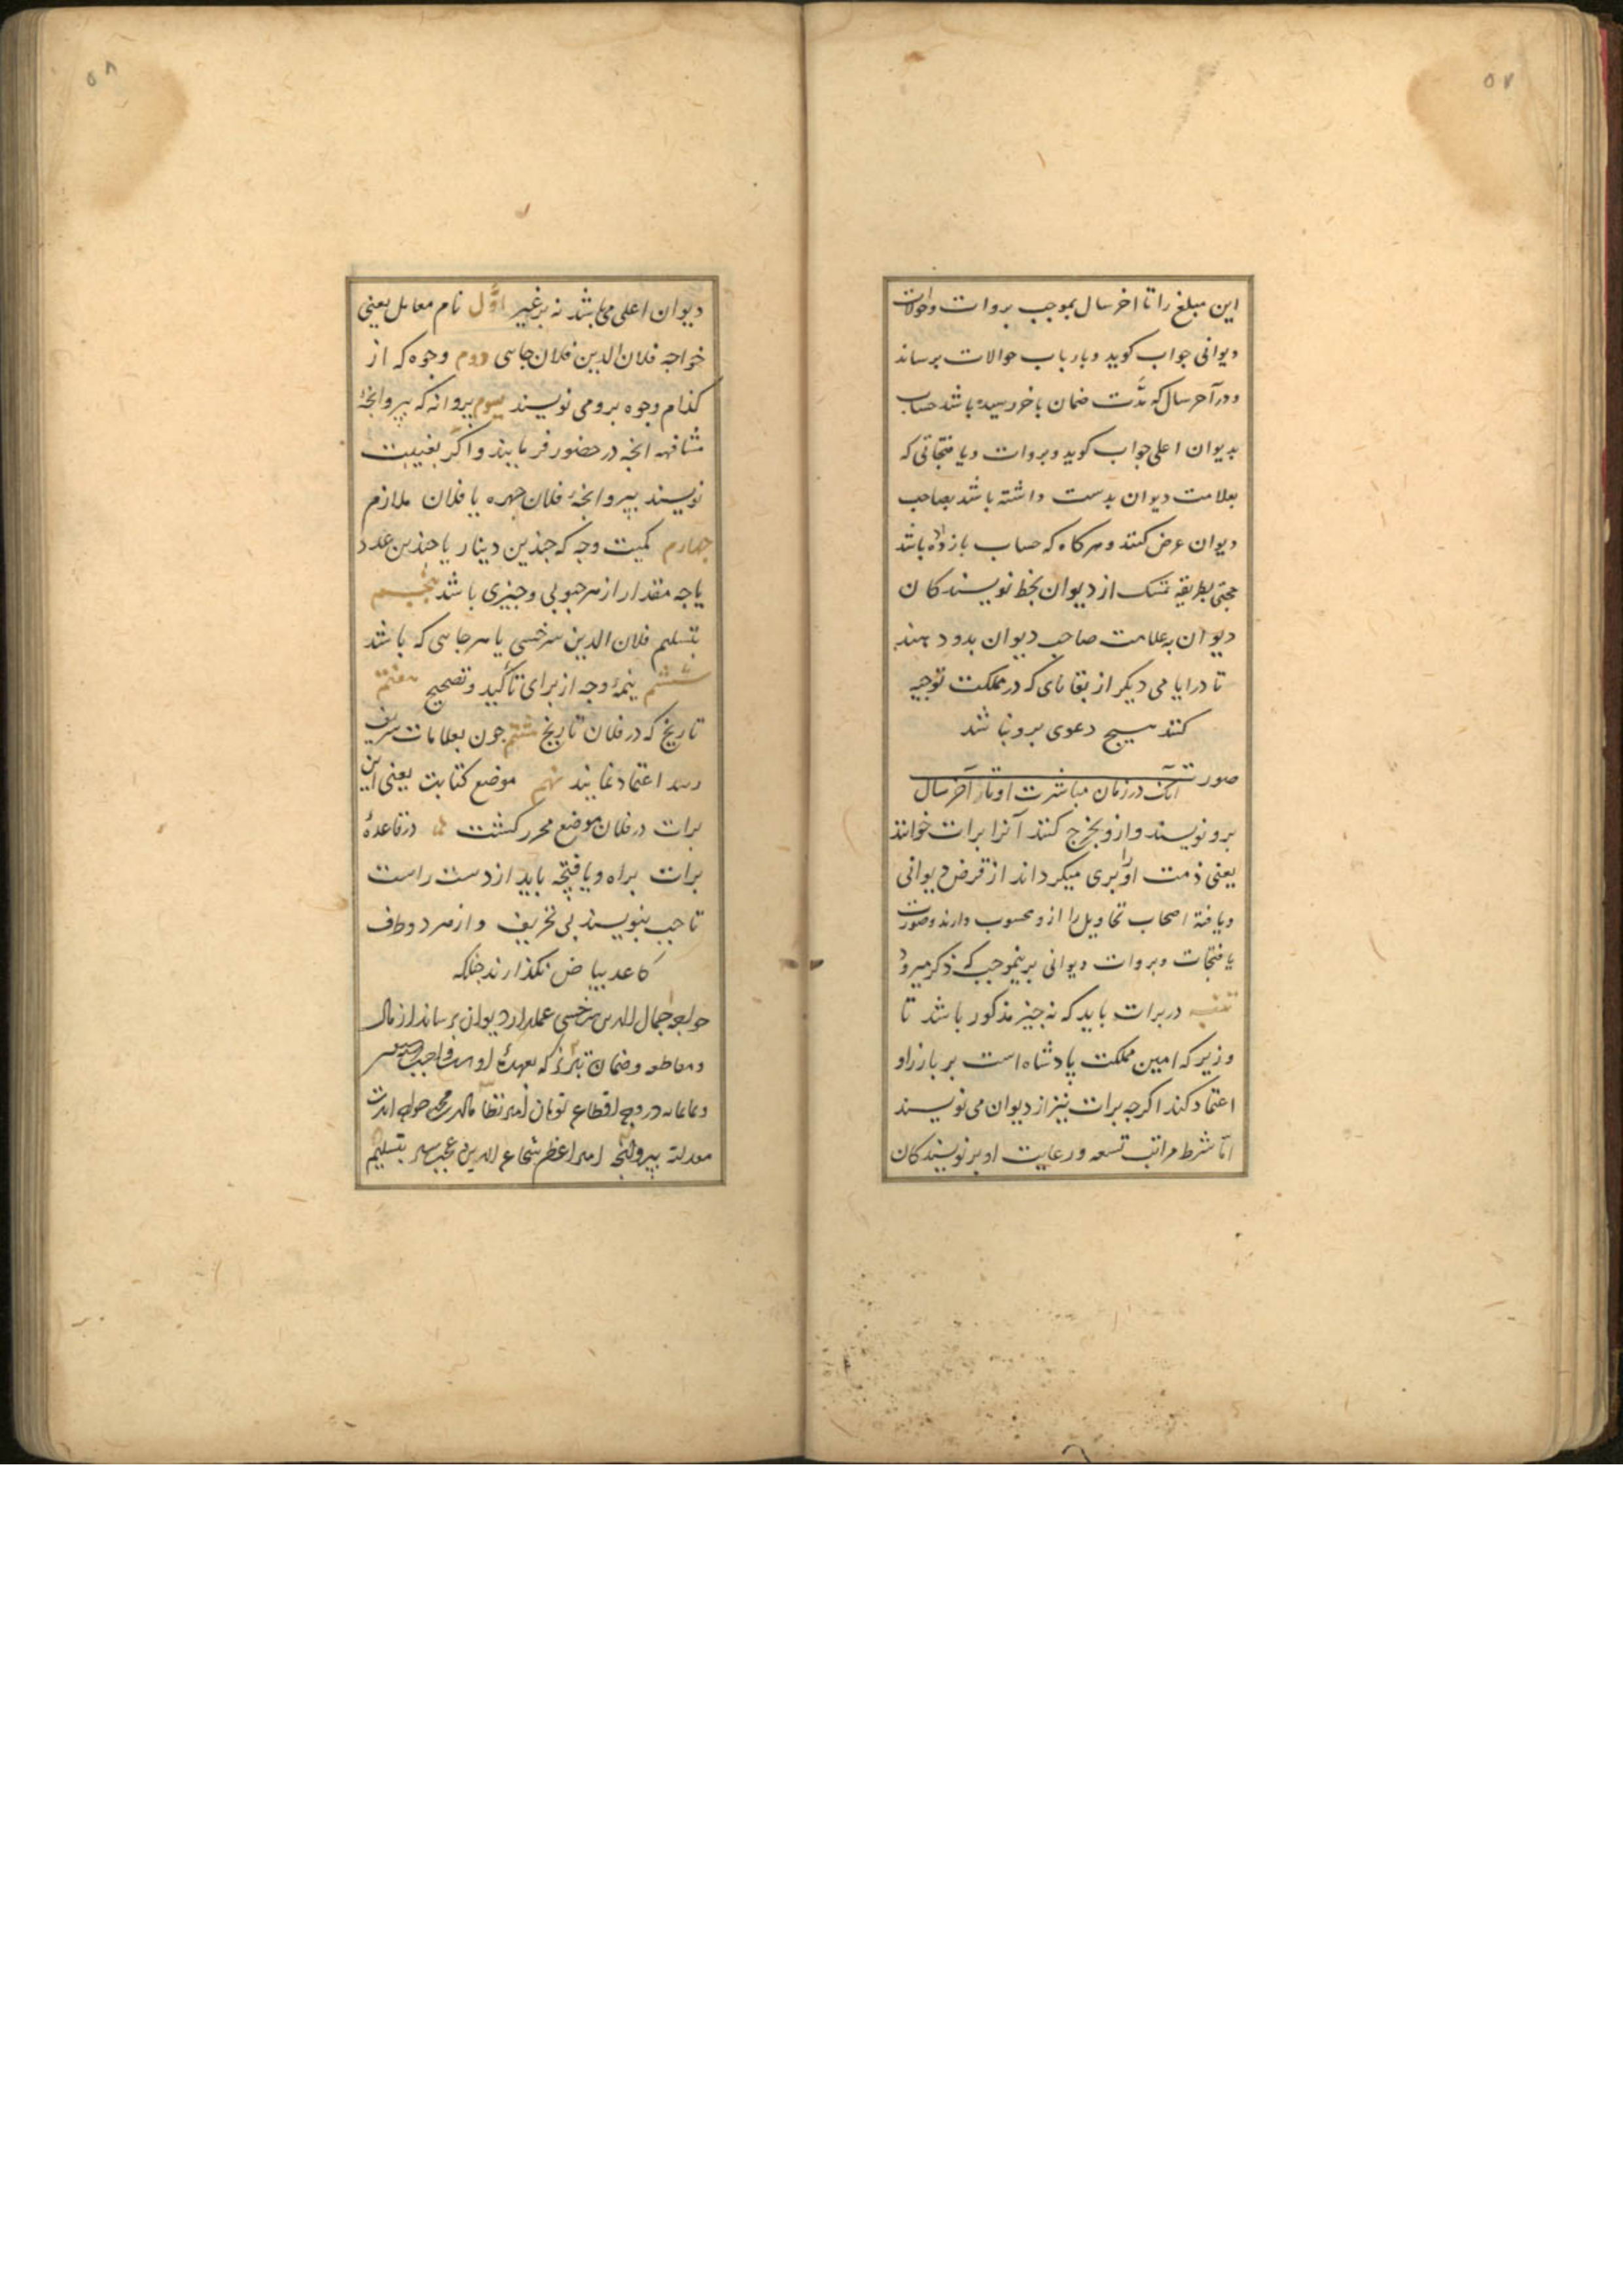 ۵۷
این مبلغ را تا اخر سال بموجب بروات وحوالات
دیوانی جواب کوید وبارباب حوالات برساند
ودر آخر سال که مدّت ضمان باخر رسیده باشد حساب
بدیوان اعلی جواب کوید وبروات ویافتجاتی که
بعلامت دیوان بدست داشته باشد بصاحب
دیوان عرض کنند وهرکاه که حساب بازداده باشد
حجتی بطریقه تمسک از دیوان بخط نویسندکان
دیوان به علامت صاحب دیوان بدو دهند
تا در ایامی دیکر از بقایای که در مملکت توجیه
کنند هیچ دعوی برو نباشد
صورت آنک در زمان مباشرت او تا آخر سال
برو نویسند وازو بخرج کنند آنرا برات خوانند
یعنی ذمت او را بری میکرداند از قرض دیوانی
ویافتهٔ اصحاب تحاویل را ازو محسوب دارند وصورت
یافتجات وبروات دیوانی برینموجب که ذکر میرود
در برات باید که نه جیز مذکور باشد تا
وزیر که امین مملکت پادشاه است بر بارزاو
اعتماد کند اکرجه برات نیز از دیوان می نویسند
امّا شرط مراتب تسعه ورعایت او بر نویسندکان
۵۸
دیوان اعلی می باشد نه بر غیر اوّل نام معامل یعنی
خواجه فلان الدین فلان جاسی دوم وجوه که از
کذام وجوه برو می نویسند سوم پروانه که بپروانجهٔ
مشافهه انجه در حضور فرمایند واکر بغیبت
نویسند بپروانجهٔ فلان جهره یا فلان ملازم
جهارم کمیت وجه که جندین دینار یا جندین عدد
یا جه مقدار از هر حبوبی وجیزی باشد پنجم
بتسلیم فلان الدین سرخسی یا هرجاسی که باشد
ششم نیمهٔ وجه از برای تأکید وتصحیح هفتم
تاریخ که در فلان تاریخ هشتم جون بعلامات شریف
رسد اعتماد نمایند نهم موضع کتابت یعنی این
برات در فلان موضع محرر کشت در قاعدهٔ
برات براه ویافتجه باید از دست راست
تا جب بنویسند بی تحریف واز هر دو طرف
کاغد بیاض نکذارند جنانکه
خواجه جمال الدین سرخسی عملدار دیوان برساند از مال
ومقاطعه وضمان تبریز که بعهدهٔ اوست واجب
در وجه اقطاع تومان امیر نظام الدین محمد
معدلته بپروانجه امیر اعظم شجاع الدین بتسلیم